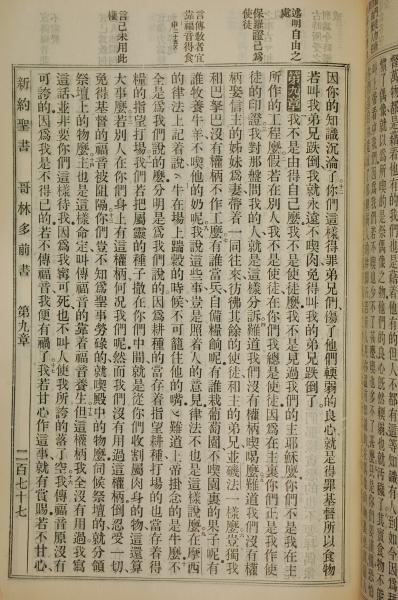 述明自由之
處
保羅證已爲
使徒
言傳教者宜
靠福音得食
言己未用此
權
因你的知識沉淪了你們這樣得罪弟兄們傷了他們輭弱的良心就是得罪基督所以食物
若叫我弟兄跌倒我就永遠不喫肉免得叫我的弟兄跌倒了
第九章 我不是由得自己麼我不是使徒麼我不是見過我們的主耶穌麼你們不是我在主
所作的工程麼假若在別人我不是使徒在你們我總是使徒因爲在主裏你們正是我作使
徒的印證我對那盤問我的人就是這樣分訴難道我們沒有權柄喫喝麼難道我們沒有權
柄娶信主的姊妹爲妻帶着一同往來彷彿其餘的使徒和主的弟兄並磯法一樣麼豈獨我
和巴拏巴沒有權柄不作工麼有誰當兵自備糧餉呢有誰栽葡萄園不喫園裏的果子呢有
誰牧養牛羊不喫他的奶呢我說這些事豈是照着人的意見律法不也是這樣說麼在摩西
的律法上記着說牛在場上踹穀的時候不可籠住他的嘴難道上帝掛念的是牛麼不
全是爲我們說的麼分明是爲我們說的因爲耕種的當存着指望耕種打場的也當存着得
糧的指望打場我們若把屬靈的種子撒在你們中間就是從你們收割屬肉身的物這還算
大事麼若別人在你們身上有這權柄何况我們呢然而我們沒有用過這權柄倒忍受一切
免得基督的福音被阻隔你們豈不知爲聖事勞碌的就喫殿中的物麼伺候祭壇的就分領
祭壇上的物麼主也是這樣命定叫傳福音的靠着福音養生但這權柄我全沒有用過我寫
這話並非要你們這樣待我因爲我寧可死也不叫人使我所誇的落了空我傳福音原沒有
可誇的因爲我是不得已的若不傳福音我便有禍了我若甘心作這事就有賞賜若不甘心
新約聖書 哥林多前書 第九章 二百七十七